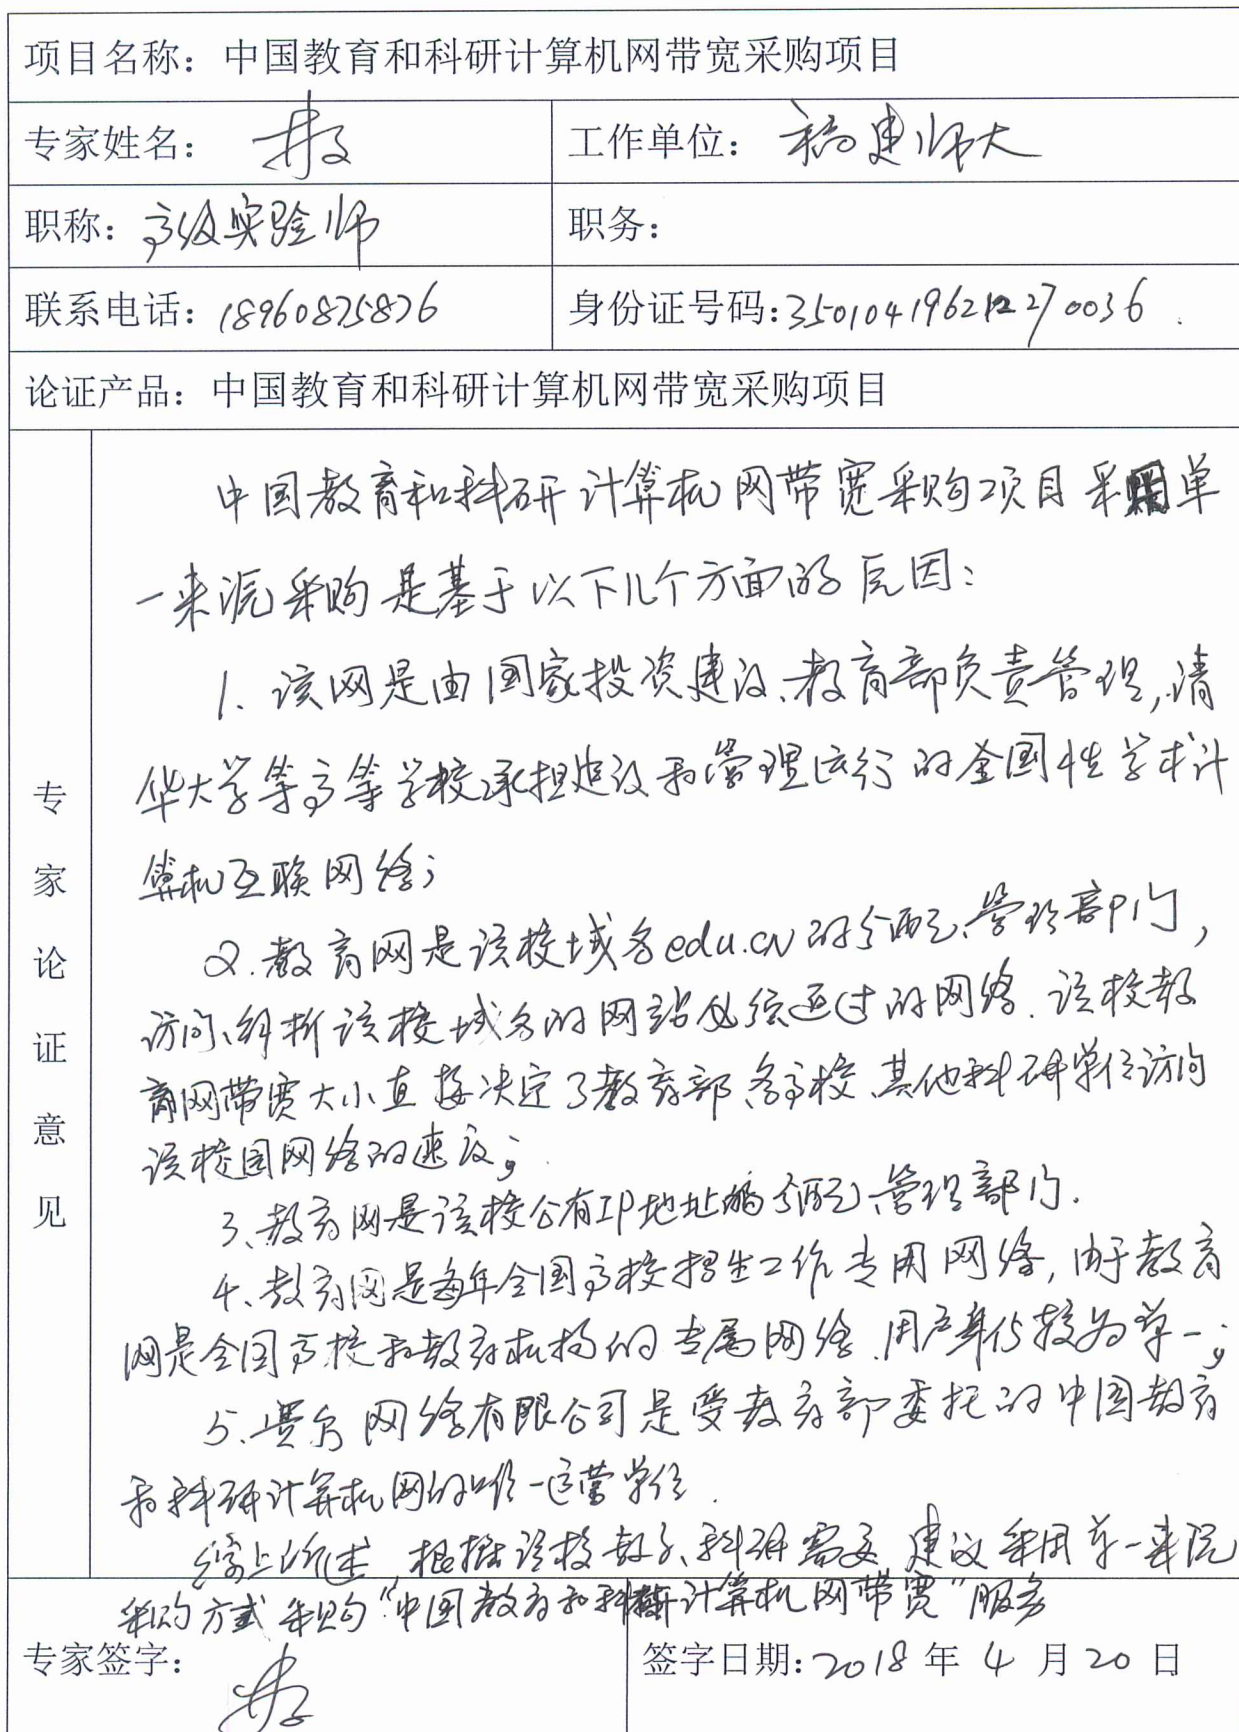 项目名称：中国教育和科研计算机网带宽采购项目
专家姓名：
工作单位：福建师大
职称：高级实验师
职务：
联系电话：18960875876
身份证号码：350104196212270036.
论证产品：中国教育和科研计算机网带宽采购项目
专家论证意见
中国教育和科研计算机网带宽采购项目采用单
一来源采购是基于以下几个方面的原因：
1、该网是由国家投资建设、教育部负责管理，清
华大学等高等学校承担建设和管理运行的全国性学术计
算机互联网络；
2.教育网是该校域名edu.cn的分配、管理部门，
访问、解析该校域名的网站必须通过的网络.该校教
育网带宽大小直接决定了教育部、各高校、其他科研单位访问
该校园网络的速度；
3、教育网是该校公有IP地址的分配、管理部门.
4、教育网是每年全国高校招生工作专用网络，由于教育
网是全国高校和教育机构的专属网络.用户单位较为单一；
5.赛尔网络有限公司是受教育部委托的中国教育
和科研计算机网的唯一运营单位.
综上所述，根据该校教学、科研需要，建议采用单一来源
采购方式采购“中国教育和科研计算机网带宽”服务
专家签字：
签字日期：2018年4月20日